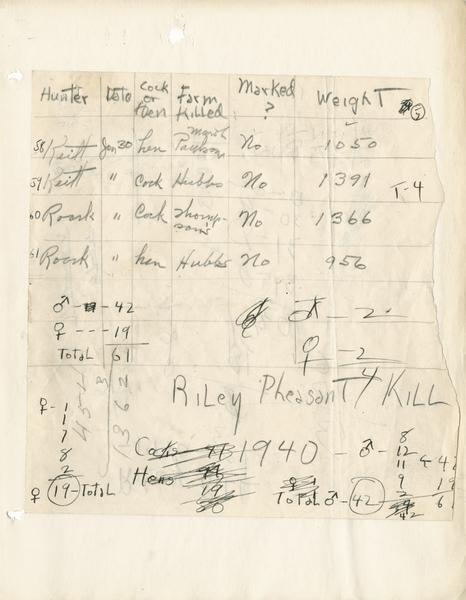 Hunter Date Cock or Hen Farm Killed Marked ? Weight 5
58 Reitt Jan 30 hen Paulson marsh No 1050
59 Reitt " Cock Hubbs No 1391 T-4
60 Roark " Cock Thompson's No 1366
61 Roark " hen Hubbs No 956
♂ - 42
♀ --- 19
Total 61
♂ - 2
♀ - 2
4
Riley Pheasant Kill
1940 - ♂ -
8
12
11
9
2
42
♀ - 1
1
7
8
2
♀ 19 - Total
Cocks
Hens
19
Total ♂ - 42
♂ 42
19
61